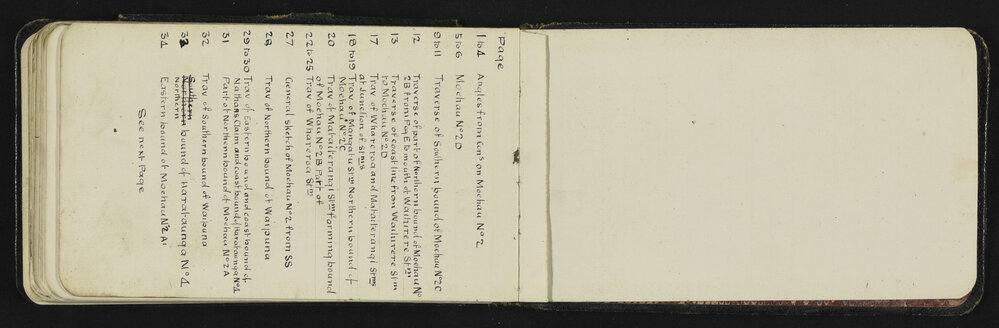 Page
1 to 4 Angles from Cons on Moehau No 2
5 to 6 Moehau No 2D
8 to 11 Traverse of Southern bound of Moehau No 2C
12 Traverse of part of Northern bound of Moehau No
2B from Peg E to mouth of Waihirere Stm
13 Traverse of coast line from Waihirere Stm
to Moehau No 2D
17 Trav of Whareroa and Mataiterangi Stms
at Junction of Stms
18 to 19 Trav of Mangatu Stm Northern bound of
Moehau No 2C
20 Trav of Mataiterangi Stm forming bound
of Moehau No 2B Part of
22 to 25 Trav of Whareroa Stm
27 General sketch of Moehau No 2 from SS
28 Trav of Northern bound of Waipuna
29 to 30 Trav of Eastern bound and coast bound of
Nathans Claim and coast bound Harataunga No 1
31 Part of Northern bound of Moehau No 2A
32 Trav of Southern bound of Waipuna
33 Southern
Northern bound of Harataunga No 1
Northern
34 Eastern bound of Moehau No 2A1
See next Page